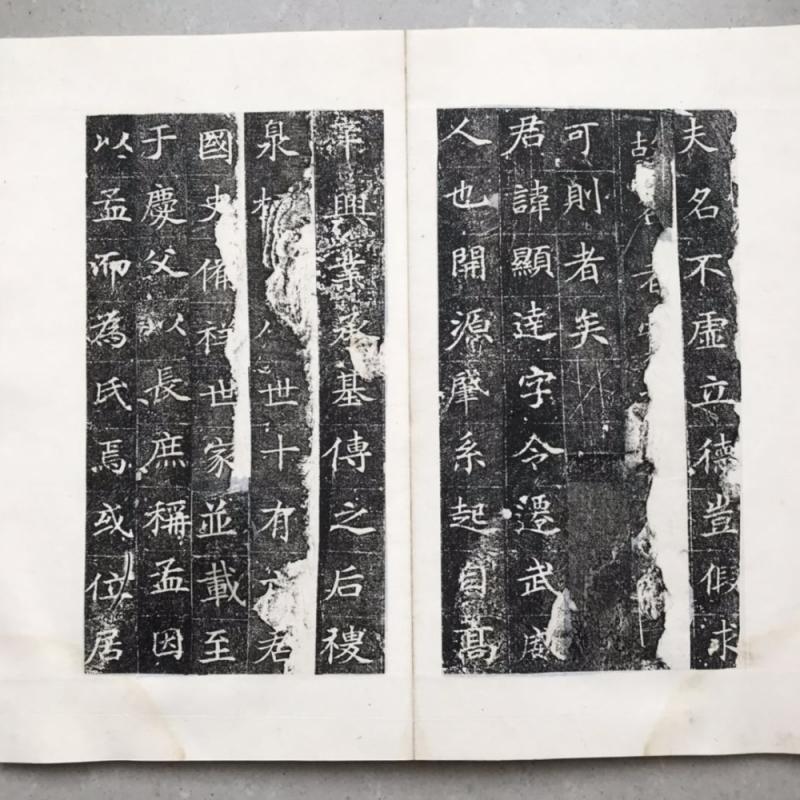 夫名不虛立德豈假求
古
可則者矣
君諱顯達字令遷武威
人也開源肇系起自高
羊興業承基傳之后稷
泉 世十有六君
國史俻在世家並載至
于慶父以長庶稱孟因
以孟而為氏焉或位居